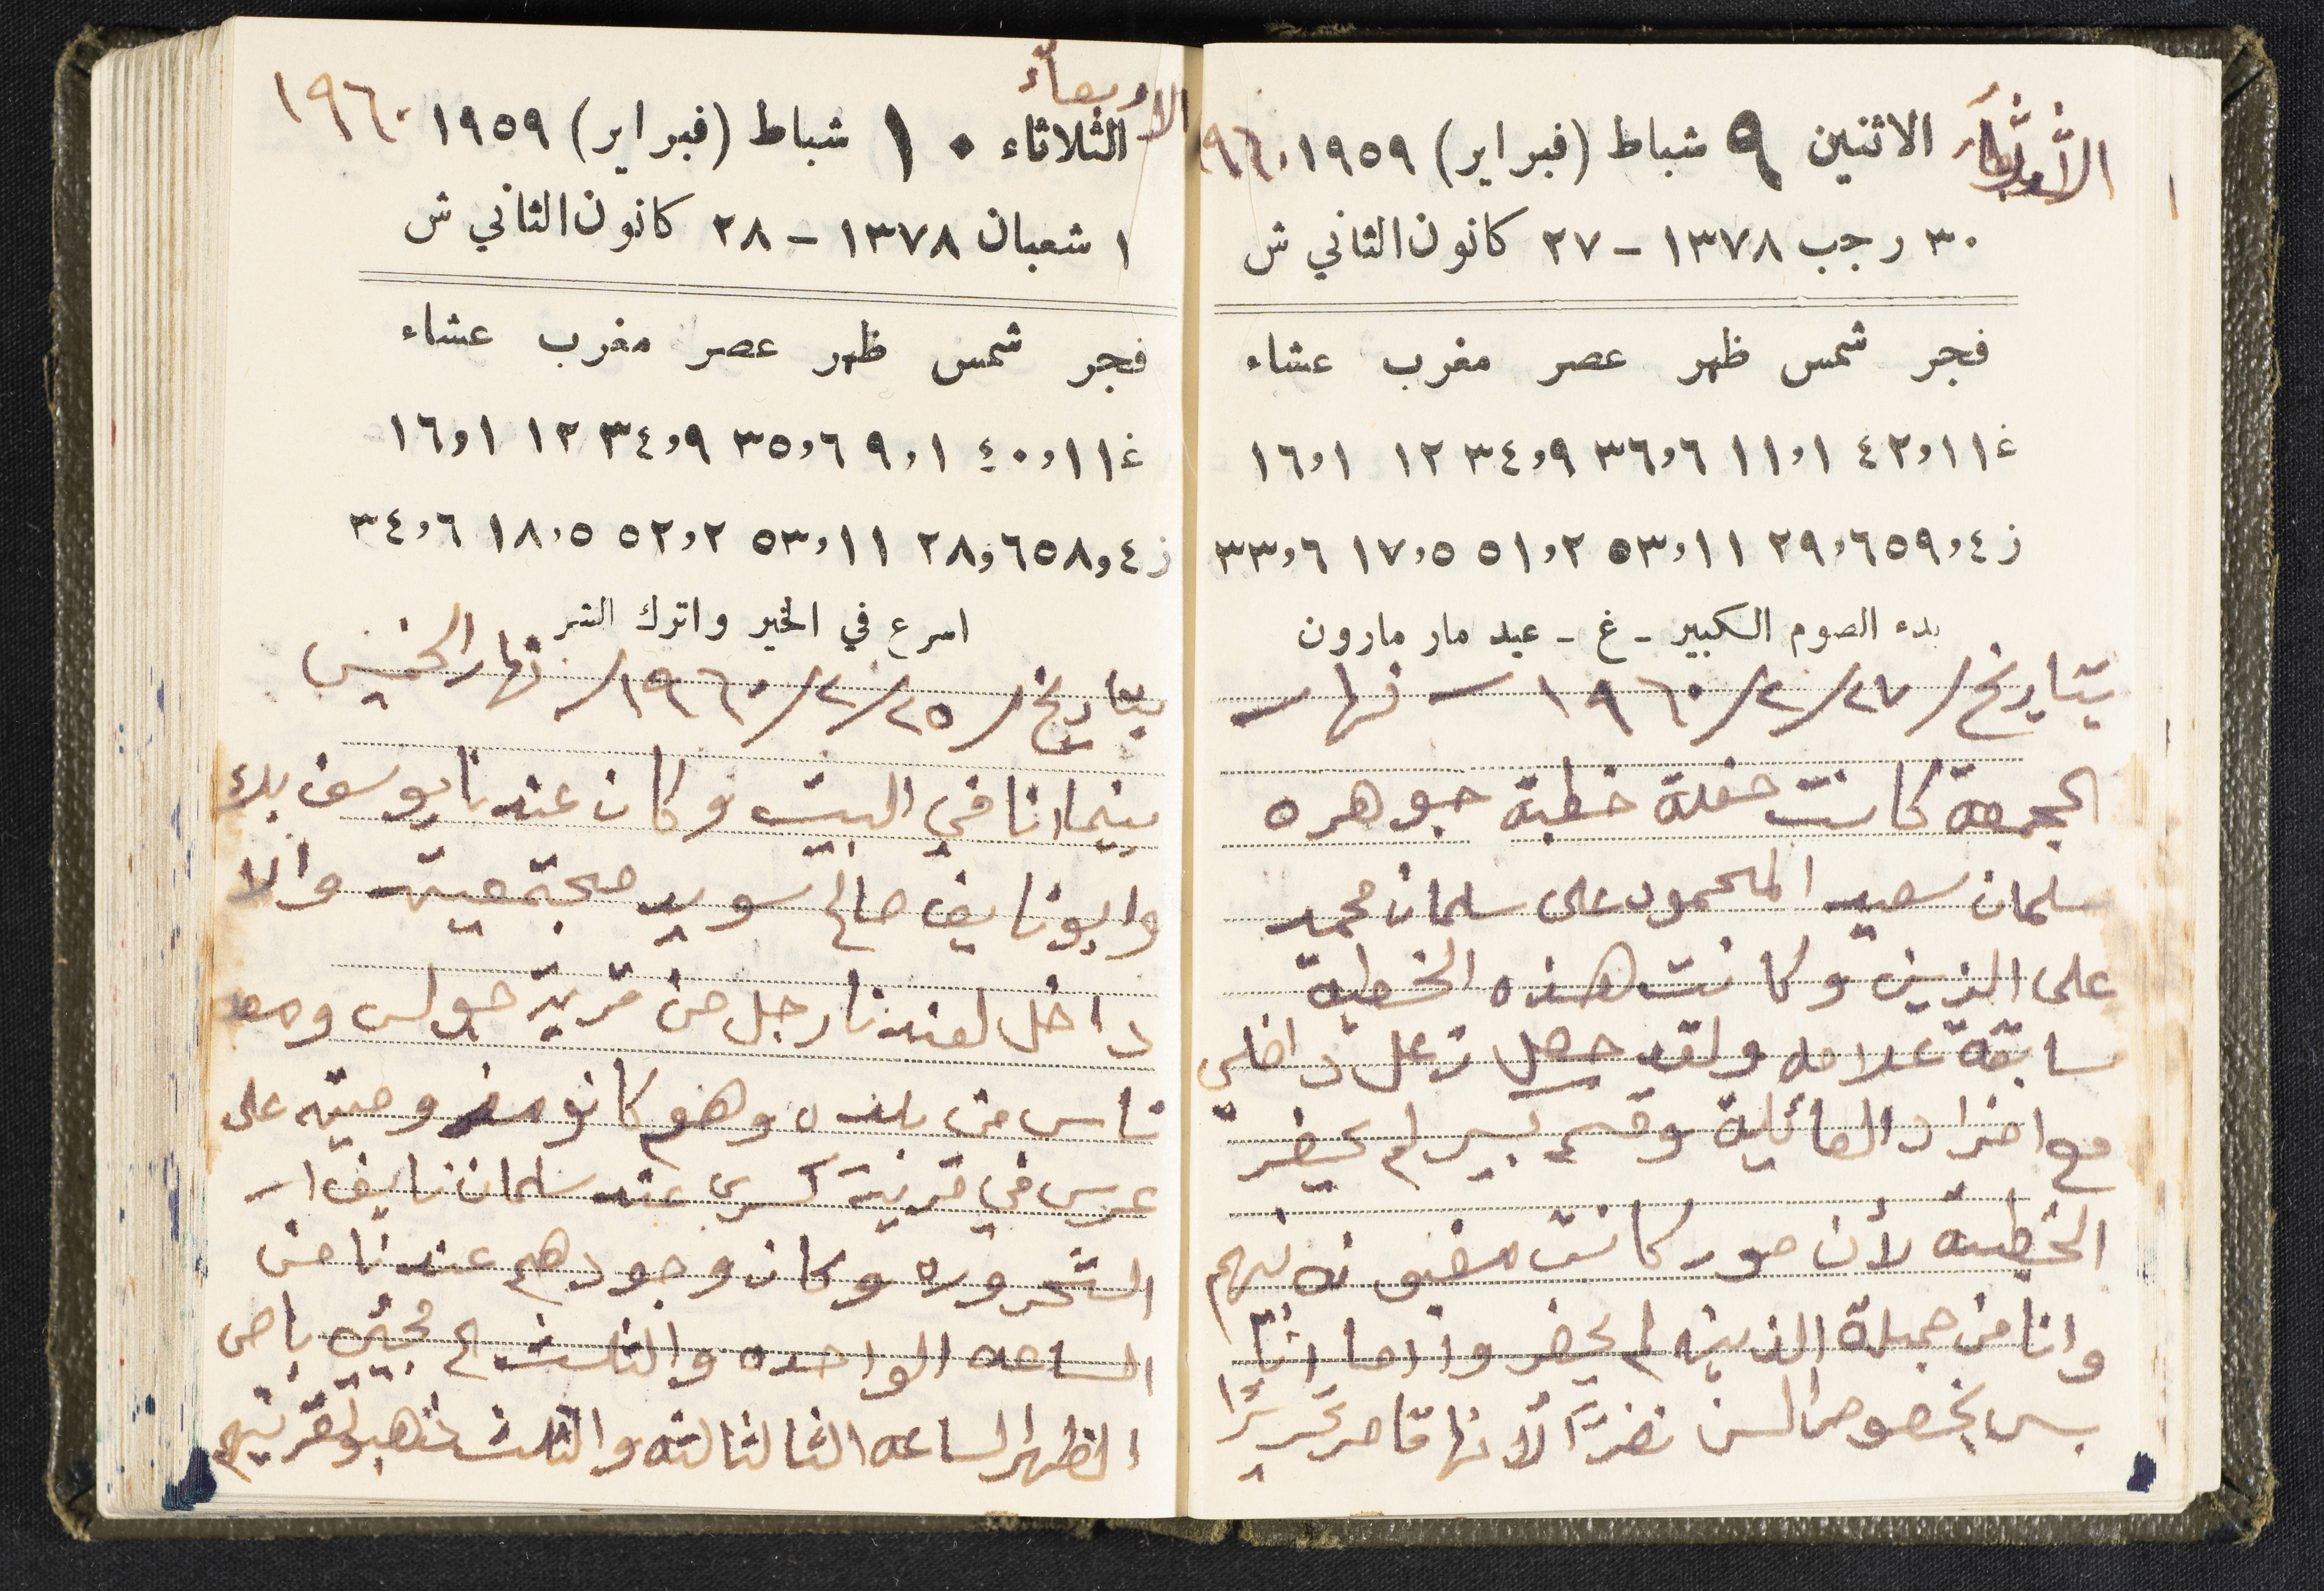 الاثنين ٩ شباط (فبراير) ١٩٥٩ ١٩٦٠
٣٠ رجب ١٣٧٨ - ٢٧ كانون الثاني ش
فجر شمس ظهر عصر مغرب عشاء
غ ١١,٤٢ ١,١١ ٦,٣٦ ٩,٣٤ ١٢ ١,١٦
ز ٤,٥٩ ٦,٢٩ ١١,٥٣ ٢,٥١ ٥,١٧ ٦,٣٣
بدء الصوم الكبير - غ - عيد مار مارون
بتاريخ / ٢٧/٢/١٩٦٠ نهار
الجمعة كانت حفلة خطبة جوهره
سلمان سعيد المحمود على سلمان محمد
على الزين وكانت هذه الخطبة
سابقة علامه ولقد حصل زعل داخلي
مع افراد العائلة وقسم كبير لم يحضر
الخطبة لأن صور كانت
وانا من جملة الذين لم يحضروا اما
بس بخصوص السن نضرًا لأنها قاصر
الاربعاء
الثلاثاء ١٠ شباط (فبراير) ١٩٥٩ ١٩٦٠
١ شعبان ١٣٧٨ - ٢٨ كانون الثاني ش
فجر شمس ظهر عصر مغرب عشاء
غ ١١,٤٠ ١,٩ ٦,٣٥ ٩,٣٤ ١٢ ١,١٦
ز ٤,٥٨ ٦,٢٨ ١١,٥٣ ٢,٥٢ ٥,١٨ ٦,٣٤
اسرع في الخير واترك الشر
بتاريخ / ٢٥/٢/١٩٦٠/ نهار الخميس
بينما انا في البيت وكان عندنا يوسف بدر
وابو نايف صالح سويد مجتمعين والا
داخل لعندنا رجل من قرية جولس ومعه
ناس من بلده وهم كانو معزومين على
عرس في قرية كسرى عند سلمان نايف ابـ
الشحروره وكان وجودهم عندنا من
الساعه الواحده والثلث لمجيئ باص
الظهر الساعه الثالثه والثلث لقريتهم